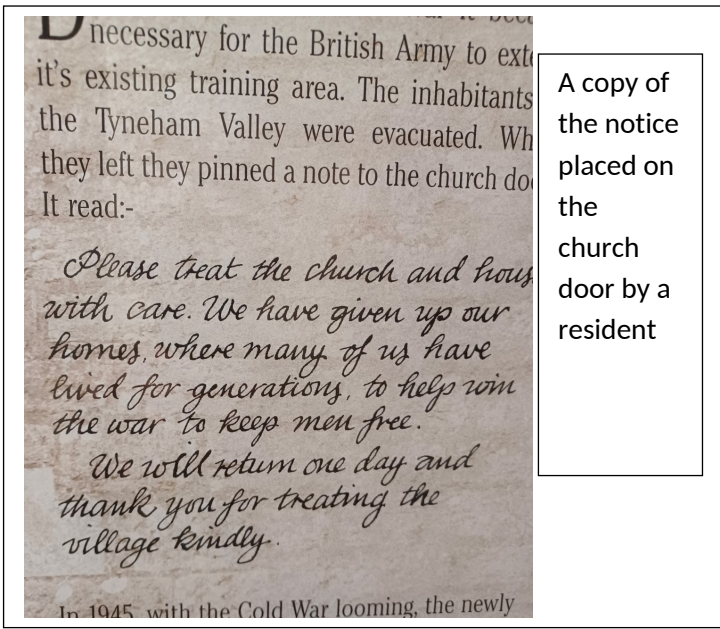 D
necessary for the British Army to ext
it's existing training area. The inhabitants
the Tyneham Valley were evacuated. Wh
they left they pinned a note to the church do
It read:-
Please treat the church and hous
with care. We have given up our
homes, where many of us have
lived for generations, to help win
the war to keep men free.
We will return one day and
thank you for treating the
village kindly.
In 1945, with the Cold War looming, the newly
A copy of
the notice
placed on
the
church
door by a
resident